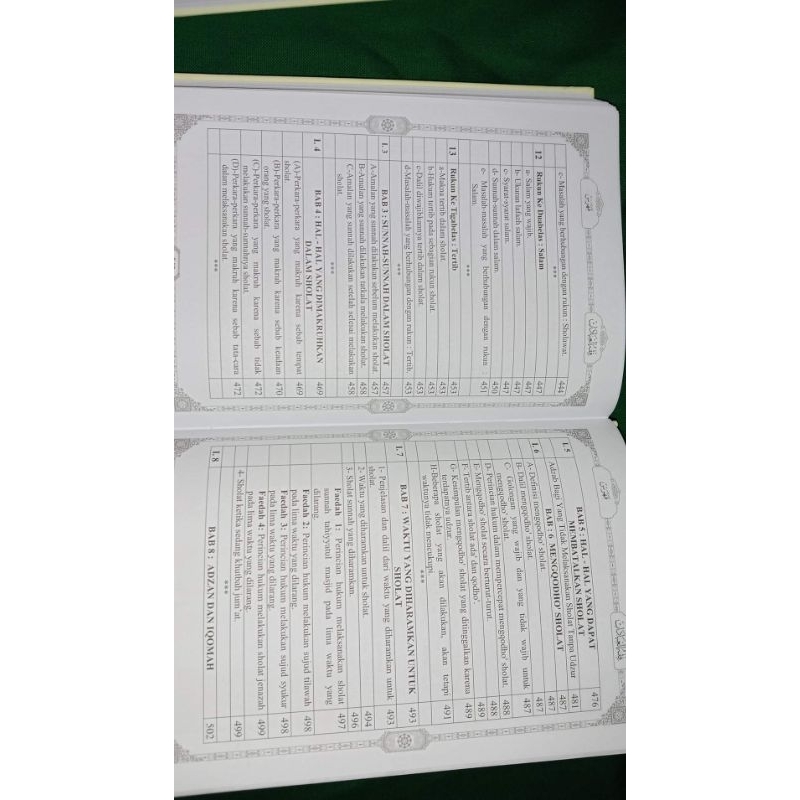 c- Masalah yang berhubungan dengan rukun : Sholawat. 444
***
12 Rukun Ke Duabelas : Salam 447
a- Salam yang wajib. 447
b- Ukuran lafadz salam. 447
c- Syarat-syarat salam. 447
d- Sunnah-sunnah dalam salam. 450
e- Masalah-masalah yang berhubungan dengan rukun : 451
Salam.
***
13 Rukun Ke Tigabelas : Tertib 453
a-Makna tertib dalam sholat. 453
b-Hukum tertib pada sebagian rukun sholat. 453
c-Dalil diwajibkannya tertib dalam sholat. 453
d-Masalah-masalah yang berhubungan dengan rukun : Tertib. 453
***
I.3 BAB 3 : SUNNAH-SUNNAH DALAM SHOLAT 457
A-Amalan yang sunnah dilakukan sebelum melakukan sholat. 457
B-Amalan yang sunnah dilakukan tatkala melakukan sholat. 458
C-Amalan yang sunnah dilakukan setelah selesai melakukan 458
sholat.
***
I.4 BAB 4 : HAL - HAL YANG DIMAKRUHKAN 469
DALAM SHOLAT
(A)-Perkara-perkara yang makruh karena sebab tempat 469
sholat.
(B)-Perkara-perkara yang makruh karena sebab keadaan 470
orang yang sholat.
(C)-Perkara-perkara yang makruh karena sebab tidak 472
melakukan sunnah-sunnahnya sholat.
(D)-Perkara-perkara yang makruh karena sebab tata-cara 472
dalam melaksanakan sholat.
***
I.5 BAB 5 : HAL - HAL YANG DAPAT 476
MEMBATALKAN SHOLAT
Adzab Bagi Yang Tidak Melaksanakan Sholat Tanpa Udzur 481
I.6 BAB : 6 MENGQODHO' SHOLAT 487
A- Definisi mengqodho' sholat. 487
B- Dalil mengqodho' sholat. 487
C- Golongan yang wajib dan yang tidak wajib untuk 487
mengqodho' sholat.
D- Perincian hukum dalam mempercepat mengqodho' sholat. 488
E- Mengqodho' sholat secara berturut-turut. 488
F- Tertib antara sholat ada' dan qodho'. 489
G- Kesimpulan mengqodho' sholat yang ditinggalkan karena 489
terdapatnya udzur.
H-Beberapa sholat yang akan dilakukan, akan tetapi 491
waktunya tidak mencukupi.
***
I.7 BAB 7 : WAKTU YANG DIHARAMKAN UNTUK 493
SHOLAT
1- Penjelasan dan dalil dari waktu yang diharamkan untuk 493
sholat.
2- Waktu yang diharamkan untuk sholat. 494
3- Sholat sunnah yang diharamkan. 496
Faedah 1: Perincian hukum melaksanakan sholat 497
sunnah tahiyyatul masjid pada lima waktu yang
dilarang.
Faedah 2: Perincian hukum melakukan sujud tilawah 498
pada lima waktu yang dilarang.
Faedah 3: Perincian hukum melakukan sujud syukur 498
pada lima waktu yang dilarang.
Faedah 4: Perincian hukum melakukan sholat jenazah 499
pada lima waktu yang dilarang.
4- Sholat ketika sedang khutbah jum'at. 499
***
I.8 BAB 8 : ADZAN DAN IQOMAH 502